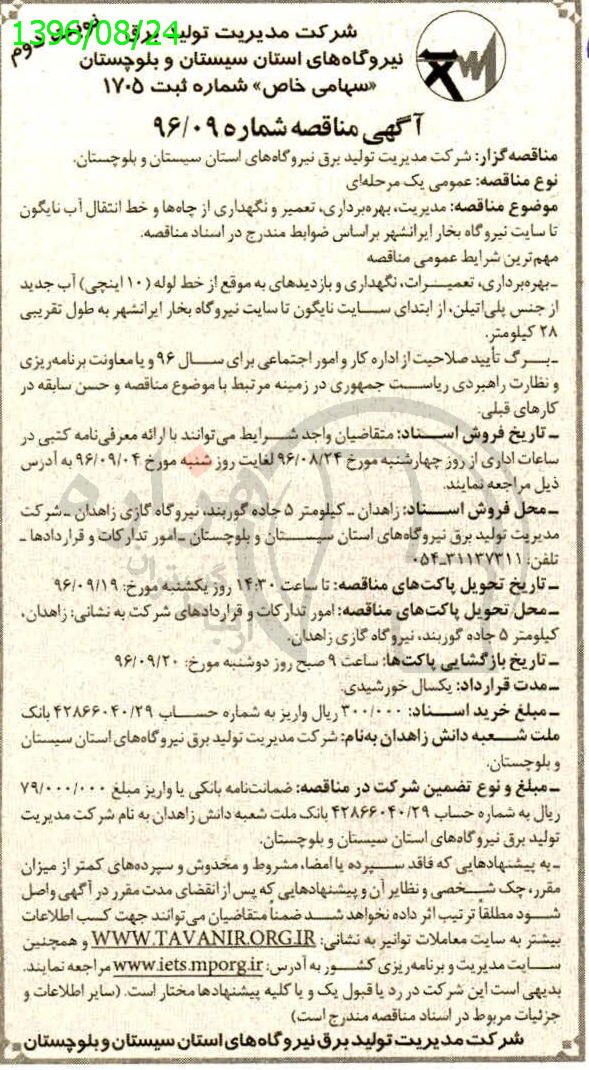 1396/08/24
نوبت دوم
شرکت مدیریت تولید برق
نیروگاه‌های استان سیستان و بلوچستان
«سهامی خاص» شماره ثبت ۱۷۰۵
آگهی مناقصه شماره ۹۶/۰۹
مناقصه‌گزار: شرکت مدیریت تولید برق نیروگاه‌های استان سیستان و بلوچستان.
نوع مناقصه: عمومی یک مرحله‌ای
موضوع مناقصه: مدیریت، بهره‌برداری، تعمیر و نگهداری از چاه‌ها و خط انتقال آب نایگون
تا سایت نیروگاه بخار ایرانشهر براساس ضوابط مندرج در اسناد مناقصه.
مهم‌ترین شرایط عمومی مناقصه
ـ بهره‌برداری، تعمیرات، نگهداری و بازدیدهای به موقع از خط لوله (۱۰ اینچی) آب جدید
از جنس پلی‌اتیلن، از ابتدای سایت نایگون تا سایت نیروگاه بخار ایرانشهر به طول تقریبی
۲۸ کیلومتر.
ـ برگ تأیید صلاحیت از اداره کار و امور اجتماعی برای سال ۹۶ و یا معاونت برنامه‌ریزی
و نظارت راهبردی ریاست جمهوری در زمینه مرتبط با موضوع مناقصه و حسن سابقه در
کارهای قبلی.
ـ تاریخ فروش اسناد: متقاضیان واجد شرایط می‌توانند با ارائه معرفی‌نامه کتبی در
ساعات اداری از روز چهارشنبه مورخ ۹۶/۰۸/۲۴ لغایت روز شنبه مورخ ۹۶/۰۹/۰۴ به آدرس
ذیل مراجعه نمایند.
ـ محل فروش اسناد: زاهدان ـ کیلومتر ۵ جاده گوربند، نیروگاه گازی زاهدان ـ شرکت
مدیریت تولید برق نیروگاه‌های استان سیستان و بلوچستان ـ امور تدارکات و قراردادها ـ
تلفن: ۳۱۱۳۷۳۱۱-۰۵۴
ـ تاریخ تحویل پاکت‌های مناقصه: تا ساعت ۱۴:۳۰ روز یکشنبه مورخ: ۹۶/۰۹/۱۹
ـ محل تحویل پاکت‌های مناقصه: امور تدارکات و قراردادهای شرکت به نشانی: زاهدان،
کیلومتر ۵ جاده گوربند، نیروگاه گازی زاهدان.
ـ تاریخ بازگشایی پاکت‌ها: ساعت ۹ صبح روز دوشنبه مورخ: ۹۶/۰۹/۲۰
ـ مدت قرارداد: یکسال خورشیدی.
ـ مبلغ خرید اسناد: ۳۰۰/۰۰۰ ریال واریز به شماره حساب ۴۲۸۶۶۰۴۰/۲۹ بانک
ملت شعبه دانش زاهدان به‌نام: شرکت مدیریت تولید برق نیروگاه‌های استان سیستان
و بلوچستان.
ـ مبلغ و نوع تضمین شرکت در مناقصه: ضمانت‌نامه بانکی یا واریز مبلغ ۷۹/۰۰۰/۰۰۰
ریال به شماره حساب ۴۲۸۶۶۰۴۰/۲۹ بانک ملت شعبه دانش زاهدان به نام شرکت مدیریت
تولید برق نیروگاه‌های استان سیستان و بلوچستان.
ـ به پیشنهادهایی که فاقد سپرده یا امضا، مشروط و مخدوش و سپرده‌های کمتر از میزان
مقرر، چک شخصی و نظایر آن و پیشنهادهایی که پس از انقضای مدت مقرر در آگهی واصل
شود مطلقاً ترتیب اثر داده نخواهد شد ضمناً متقاضیان می‌توانند جهت کسب اطلاعات
بیشتر به سایت معاملات توانیر به نشانی: WWW.TAVANIR.ORG.IR و همچنین
سایت مدیریت و برنامه‌ریزی کشور به آدرس: www.iets.mporg.ir مراجعه نمایند.
بدیهی است این شرکت در رد یا قبول یک و یا کلیه پیشنهادها مختار است. (سایر اطلاعات و
جزئیات مربوط در اسناد مناقصه مندرج است)
شرکت مدیریت تولید برق نیروگاه‌های استان سیستان و بلوچستان